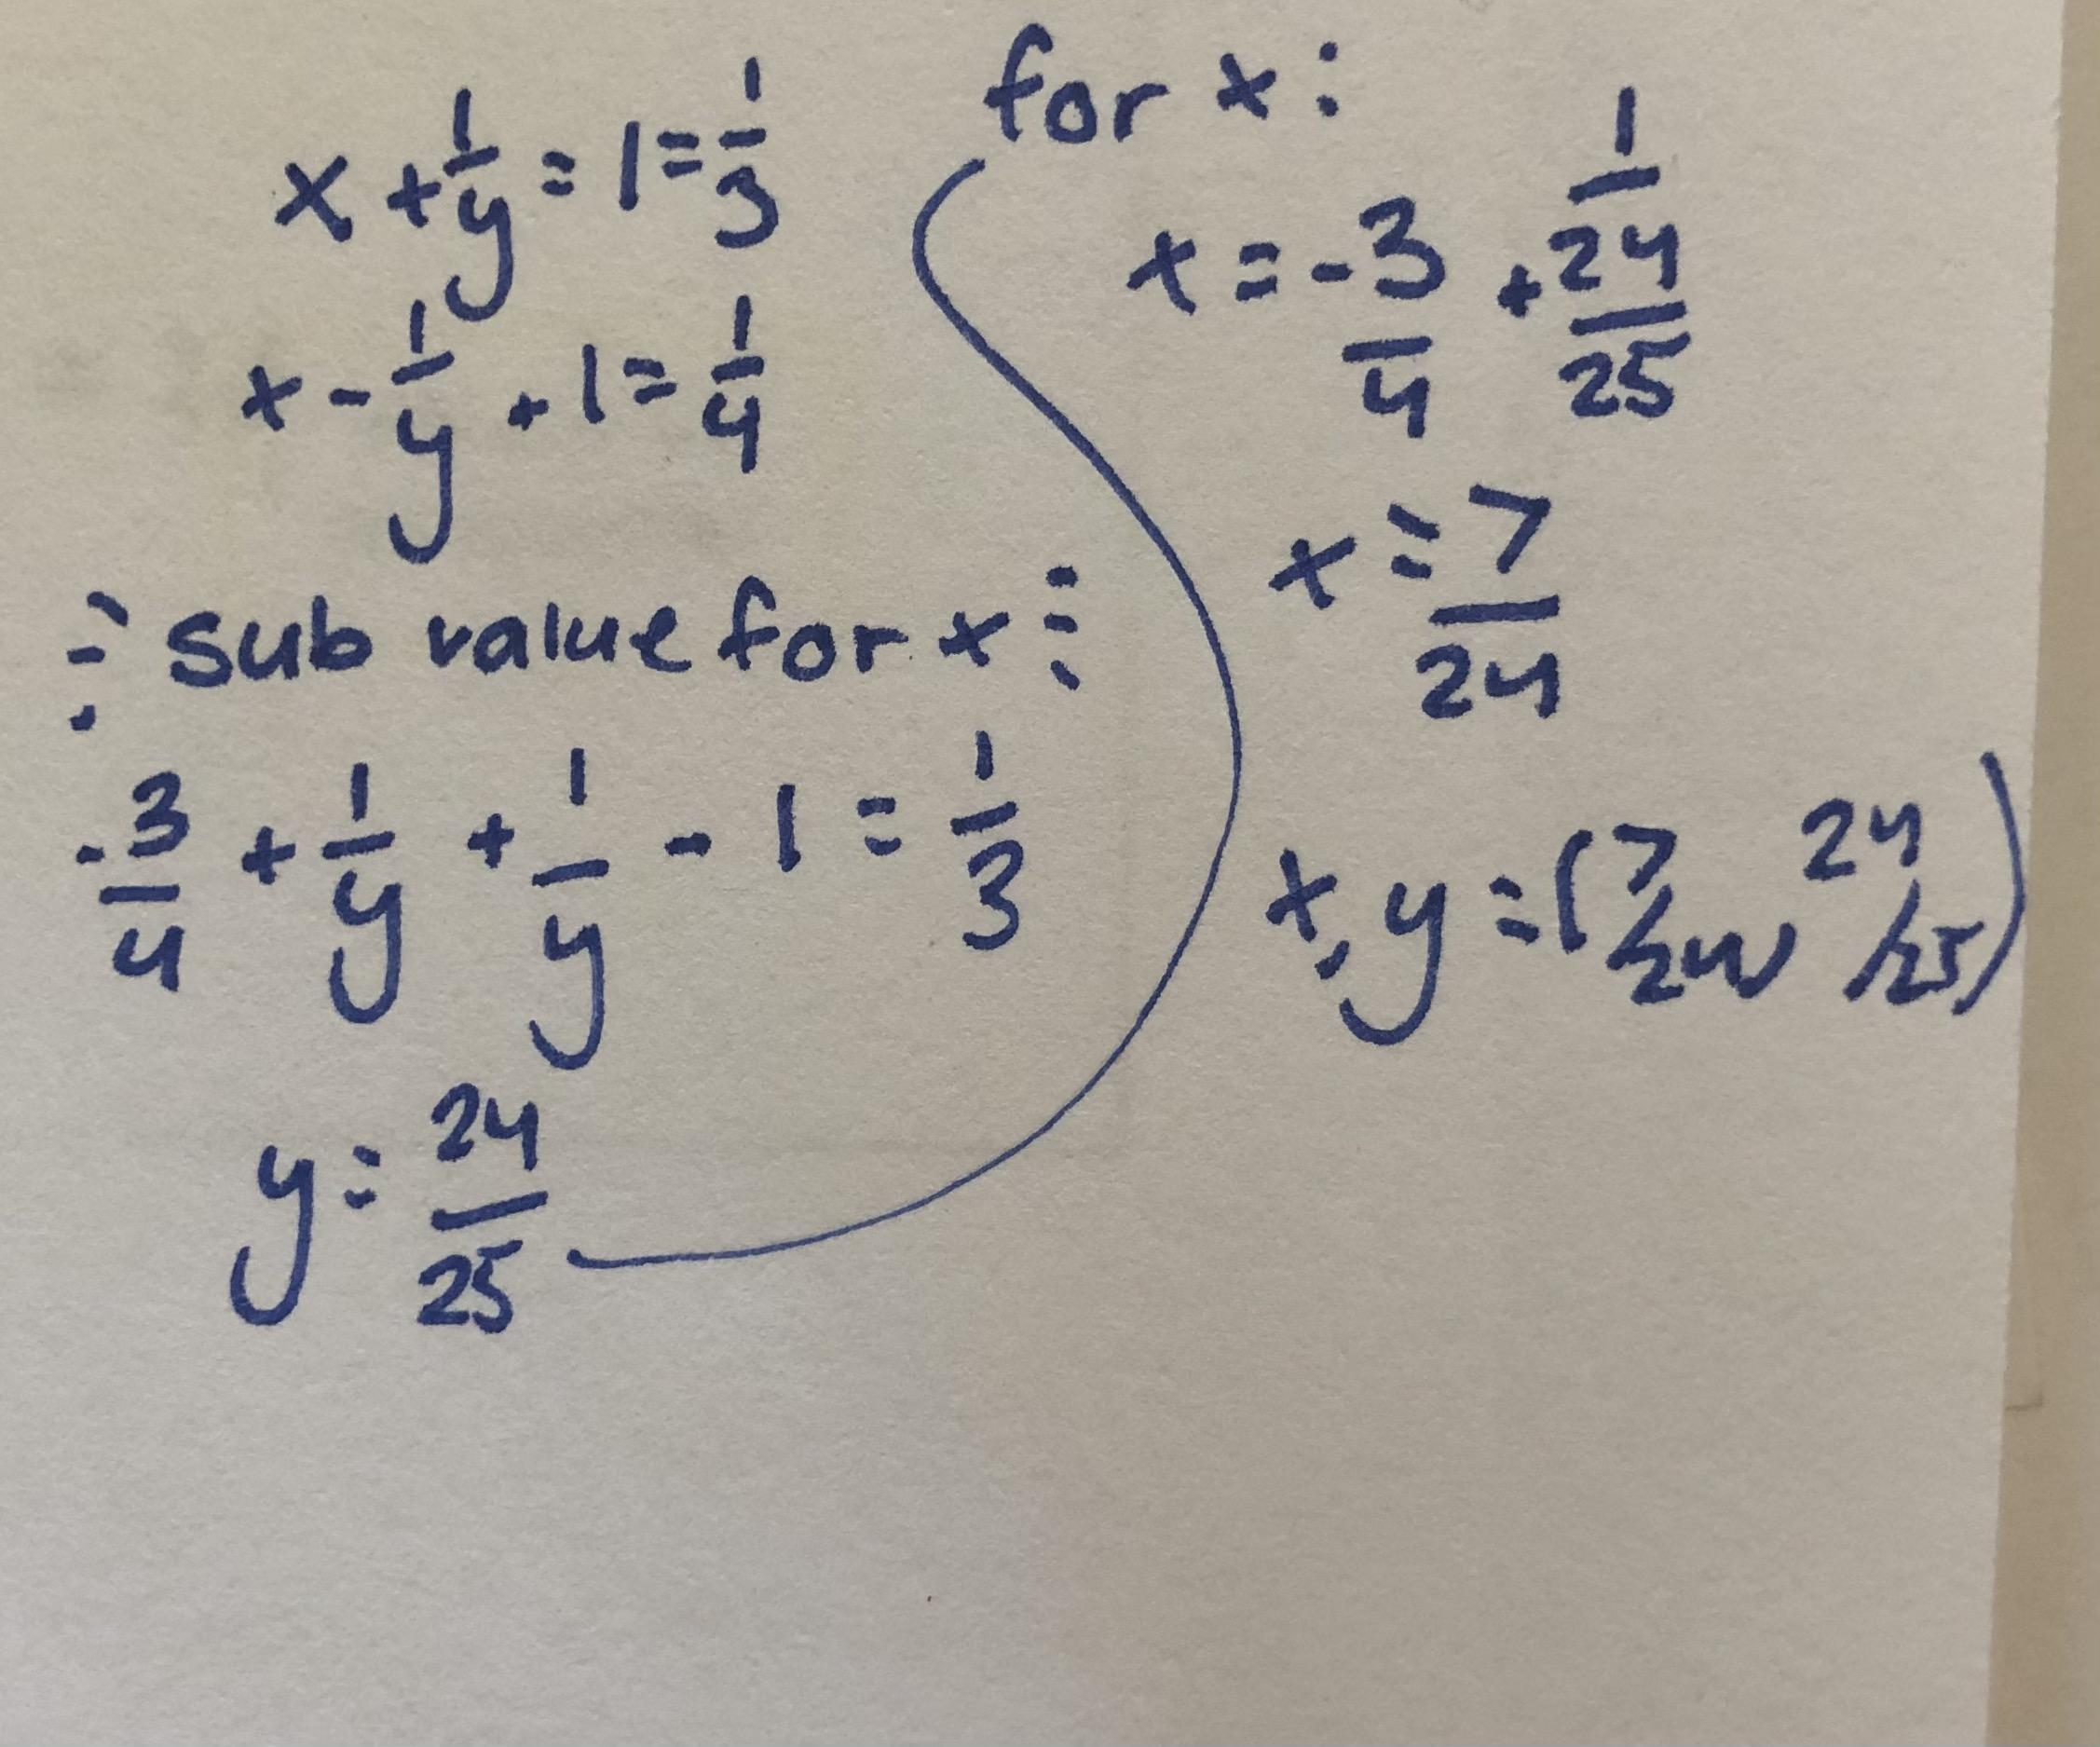 x + 1/y = 1 = 1/3
x - 1/y + 1 = 1/4
sub value for x:
-3/4 + 1/y + 1/y - 1 = 1/3
y = 24/25
for x:
x = -3/4 + 1/(24/25)
x = 7/24
x, y = (7/24, 24/25)